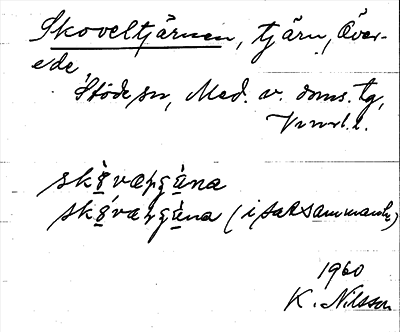 Skoveltjärnen, tjärn, Över-
ede,
Stöde sn, Med. v. doms. tg,
Vnrl. l.
skò̤væɳgä̀na
skó̤væɳgä̀na (i satssammanh)
1960
K. Nilsson